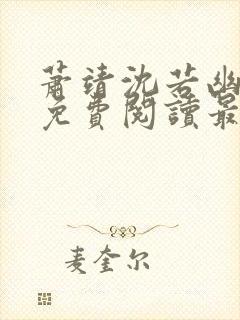 蕭靖沈若幽
免費閱讀最
麦奎尔